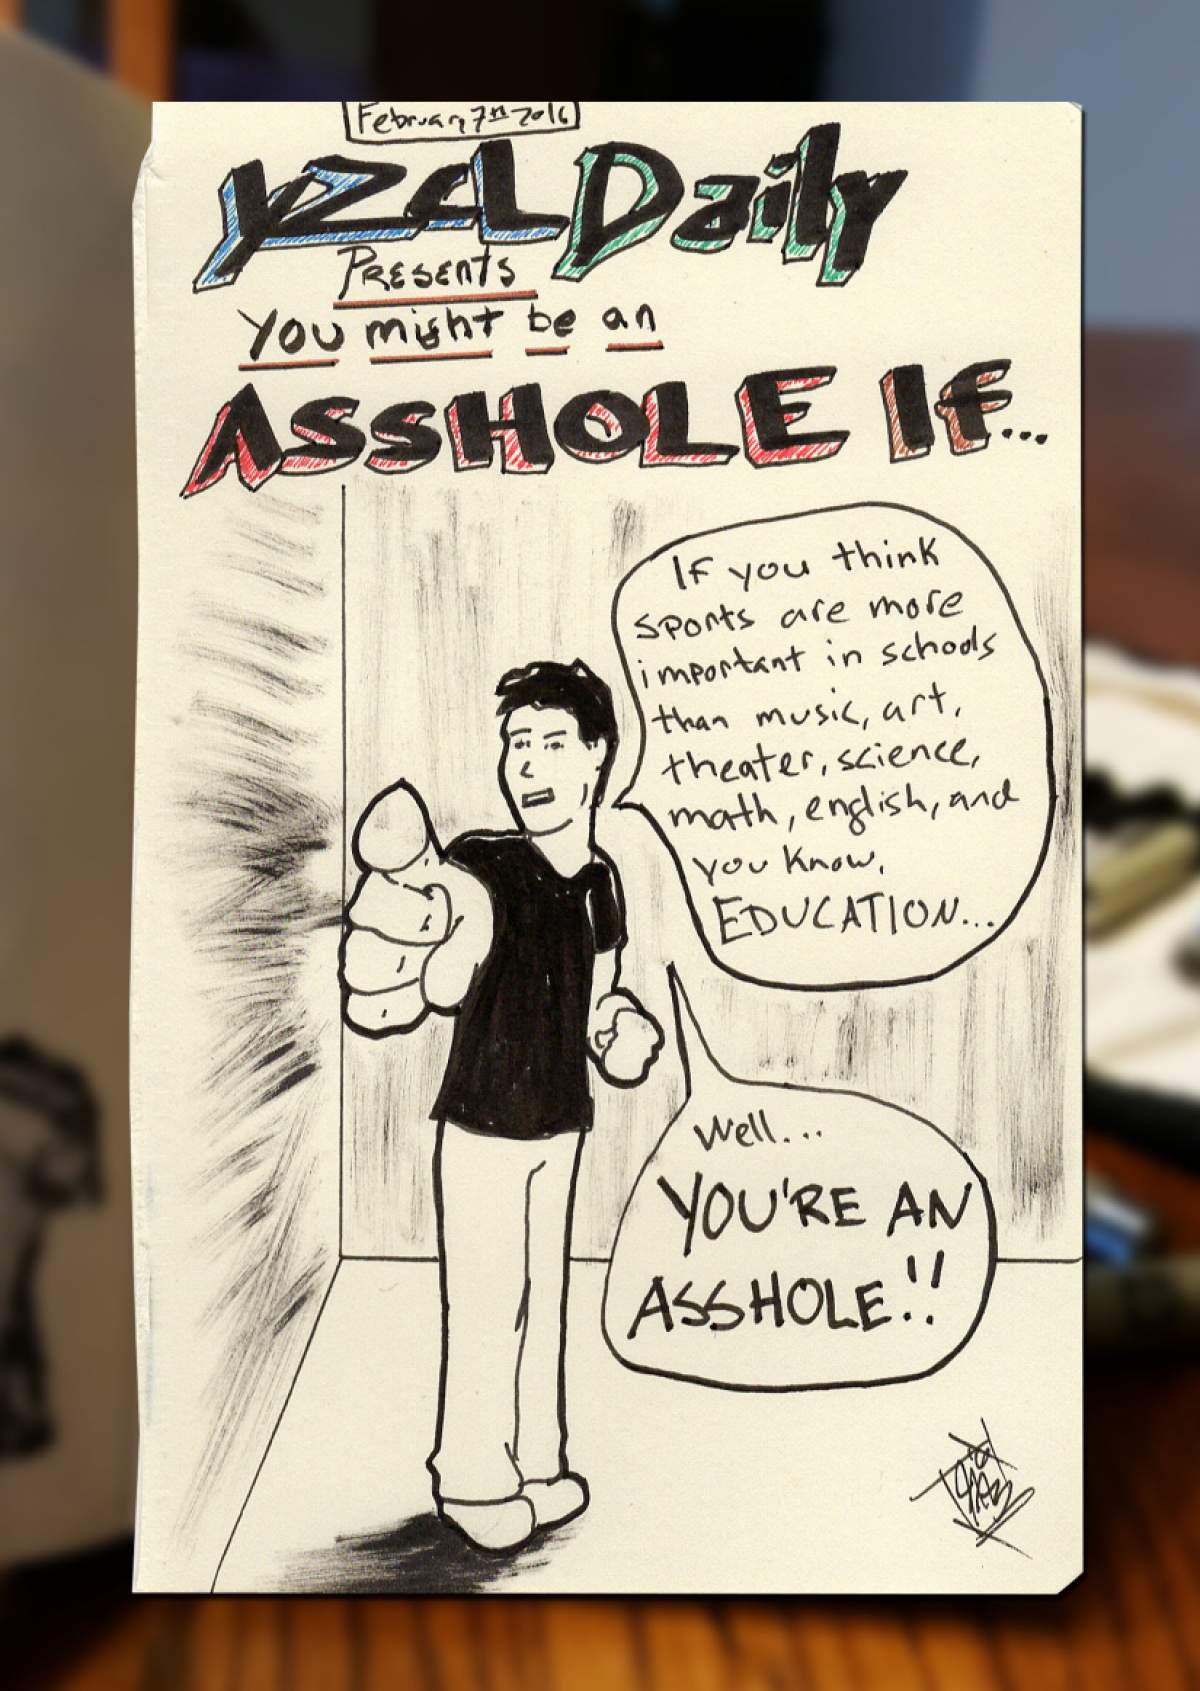 February 7th 2016
YZCL Daily
Presents
You might be an
ASSHOLE If...
If you think
sports are more
important in schools
than music, art,
theater, science,
math, english, and
you know,
EDUCATION...
Well...
YOU'RE AN
ASSHOLE!!